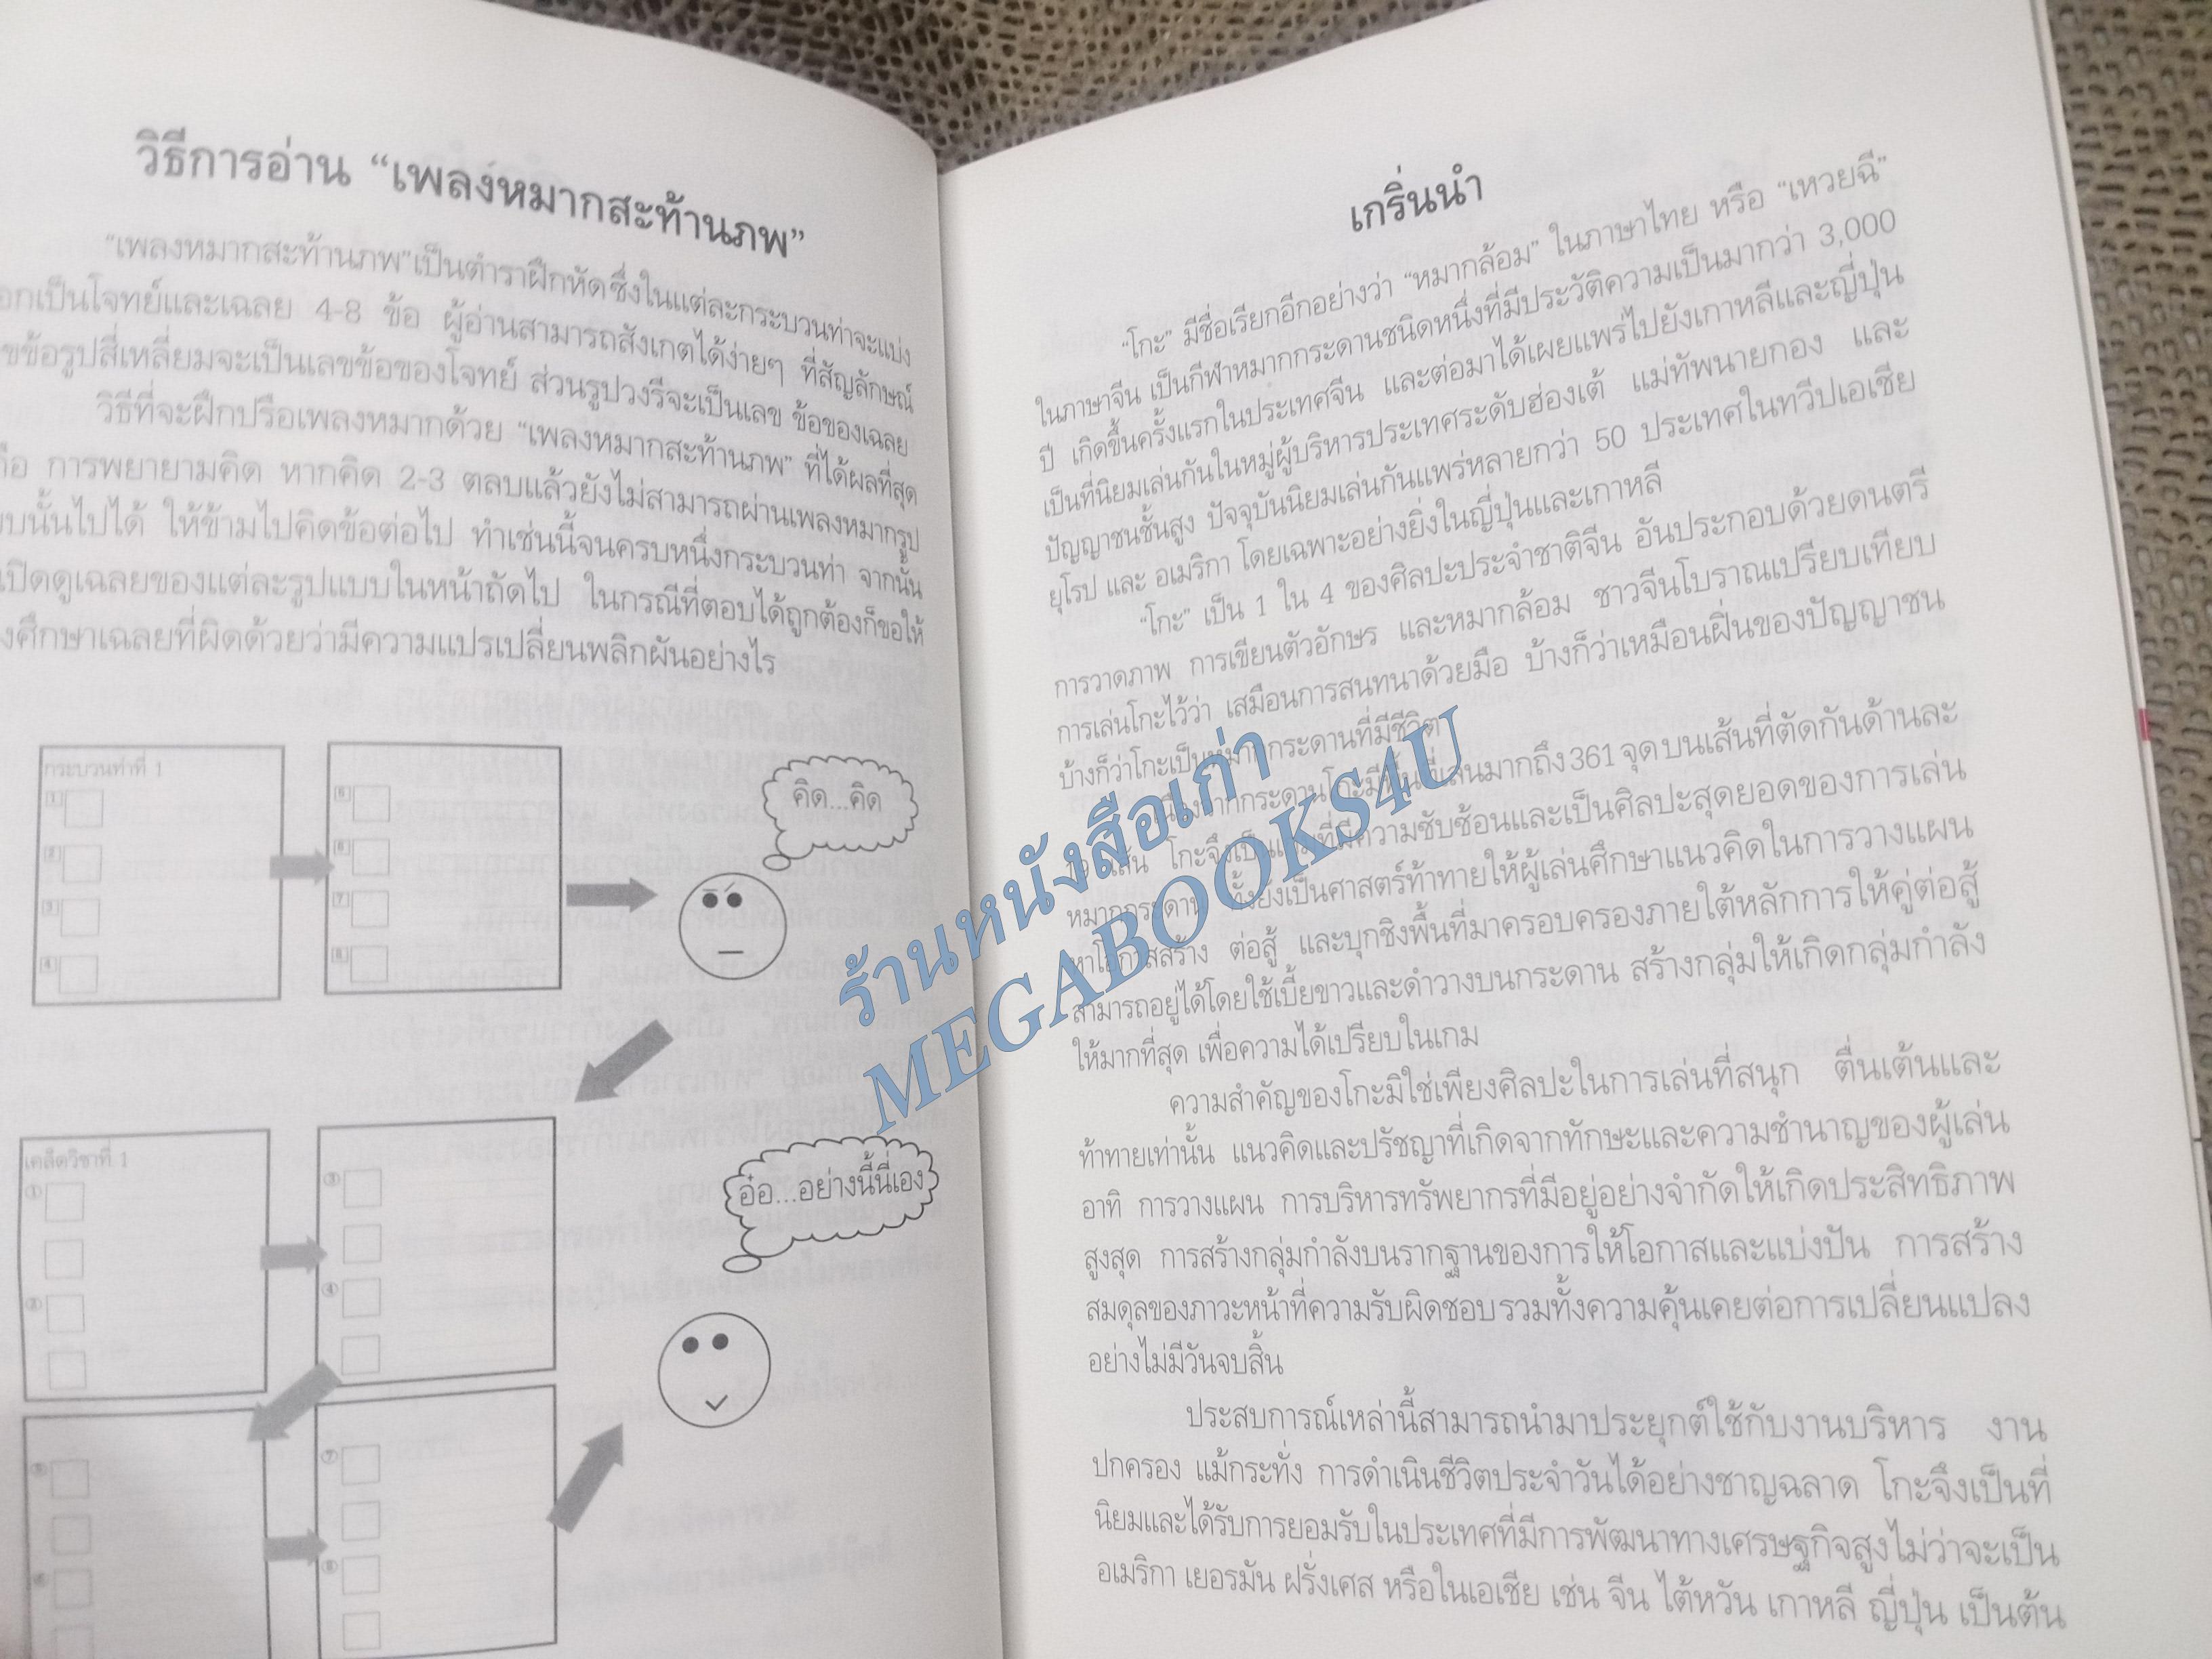 วิธีการอ่าน “เพลงหมากสะท้านภพ”
“เพลงหมากสะท้านภพ”เป็นตำราฝึกหัดซึ่งในแต่ละกระบวนท่าจะแบ่ง
เป็นโจทย์และเฉลย 4-8 ข้อ ผู้อ่านสามารถสังเกตได้ง่ายๆ ที่สัญลักษณ์
ข้อรูปสี่เหลี่ยมจะเป็นเลขข้อของโจทย์ ส่วนรูปวงรีจะเป็นเลข ข้อของเฉลย
วิธีที่จะฝึกปรือเพลงหมากด้วย “เพลงหมากสะท้านภพ” ที่ได้ผลที่สุด
การพยายามคิด หากคิด 2-3 ตลบแล้วยังไม่สามารถผ่านเพลงหมากรูป
นั้นไปได้ ให้ข้ามไปคิดข้อต่อไป ทำเช่นนี้จนครบหนึ่งกระบวนท่า จากนั้น
เปิดดูเฉลยของแต่ละรูปแบบในหน้าถัดไป ในกรณีที่ตอบได้ถูกต้องก็ขอให้
ศึกษาเฉลยที่ผิดด้วยว่ามีความแปรเปลี่ยนพลิกผันอย่างไร
กระบวนท่าที่ 1
1
2
3
4
5
6
7
8
คิด...คิด
เคล็ดวิชาที่ 1
①
②
③
④
อ๋อ...อย่างนี้นี่เอง
⑤
⑥
⑦
⑧
เกริ่นนำ
“โกะ” มีชื่อเรียกอีกอย่างว่า “หมากล้อม” ในภาษาไทย หรือ “เหวยฉี”
ในภาษาจีน เป็นกีฬาหมากกระดานชนิดหนึ่งที่มีประวัติความเป็นมากว่า 3,000
ปี เกิดขึ้นครั้งแรกในประเทศจีน และต่อมาได้เผยแพร่ไปยังเกาหลีและญี่ปุ่น
เป็นที่นิยมเล่นกันในหมู่ผู้บริหารประเทศระดับฮ่องเต้ แม่ทัพนายกอง และ
ปัญญาชนชั้นสูง ปัจจุบันนิยมเล่นกันแพร่หลายกว่า 50 ประเทศในทวีปเอเชีย
ยุโรป และ อเมริกา โดยเฉพาะอย่างยิ่งในญี่ปุ่นและเกาหลี
“โกะ” เป็น 1 ใน 4 ของศิลปะประจำชาติจีน อันประกอบด้วยดนตรี
การวาดภาพ การเขียนตัวอักษร และหมากล้อม ชาวจีนโบราณเปรียบเทียบ
การเล่นโกะไว้ว่า เสมือนการสนทนาด้วยมือ บ้างก็ว่าเหมือนฝิ่นของปัญญาชน
บ้างก็ว่าโกะเป็นหมากกระดานที่มีชีวิต
เนื่องจากกระดานโกะมีพื้นที่เล่นมากถึง 361 จุด บนเส้นที่ตัดกันด้านละ
19 เส้น โกะจึงเป็นเกมที่มีความซับซ้อนและเป็นศิลปะสุดยอดของการเล่น
หมากกระดาน ทั้งยังเป็นศาสตร์ท้าทายให้ผู้เล่นศึกษาแนวคิดในการวางแผน
หาโอกาสสร้าง ต่อสู้ และบุกชิงพื้นที่มาครอบครองภายใต้หลักการให้คู่ต่อสู้
สามารถอยู่ได้โดยใช้เบี้ยขาวและดำวางบนกระดาน สร้างกลุ่มให้เกิดกลุ่มกำลัง
ให้มากที่สุด เพื่อความได้เปรียบในเกม
ความสำคัญของโกะมิใช่เพียงศิลปะในการเล่นที่สนุก ตื่นเต้นและ
ท้าทายเท่านั้น แนวคิดและปรัชญาที่เกิดจากทักษะและความชำนาญของผู้เล่น
อาทิ การวางแผน การบริหารทรัพยากรที่มีอยู่อย่างจำกัดให้เกิดประสิทธิภาพ
สูงสุด การสร้างกลุ่มกำลังบนรากฐานของการให้โอกาสและแบ่งปัน การสร้าง
สมดุลของภาวะหน้าที่ความรับผิดชอบ รวมทั้งความคุ้นเคยต่อการเปลี่ยนแปลง
อย่างไม่มีวันจบสิ้น
ประสบการณ์เหล่านี้สามารถนำมาประยุกต์ใช้กับงานบริหาร งาน
ปกครอง แม้กระทั่ง การดำเนินชีวิตประจำวันได้อย่างชาญฉลาด โกะจึงเป็นที่
นิยมและได้รับการยอมรับในประเทศที่มีการพัฒนาทางเศรษฐกิจสูงไม่ว่าจะเป็น
อเมริกา เยอรมัน ฝรั่งเศส หรือในเอเชีย เช่น จีน ไต้หวัน เกาหลี ญี่ปุ่น เป็นต้น
ร้านหนังสือเก่า
MEGABOOKS4U